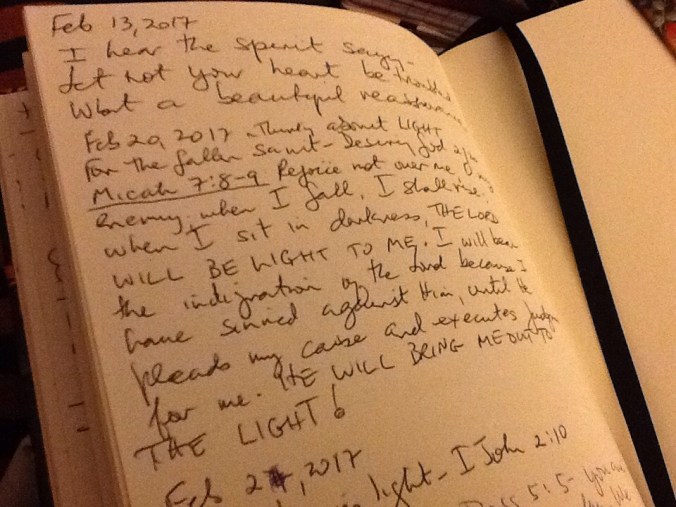 Feb 13, 2017
I hear the spirit say-
Let not your heart be troubled
What a beautiful
Feb 20, 2017 - Thinking about LIGHT
For the fallen saint - Desiring God
Micah 7:8-9 Rejoice not over me O my
enemy; when I fall, I shall rise.
when I sit in darkness, THE LORD
WILL BE LIGHT TO ME. I will bear
the indignation of the Lord because I
have sinned against Him, until He
pleads my cause and executes judgm
for me. HE WILL BRING ME OUT TO
THE LIGHT!
Feb 2, 2017
light - I John 2:10
5:5 - You are